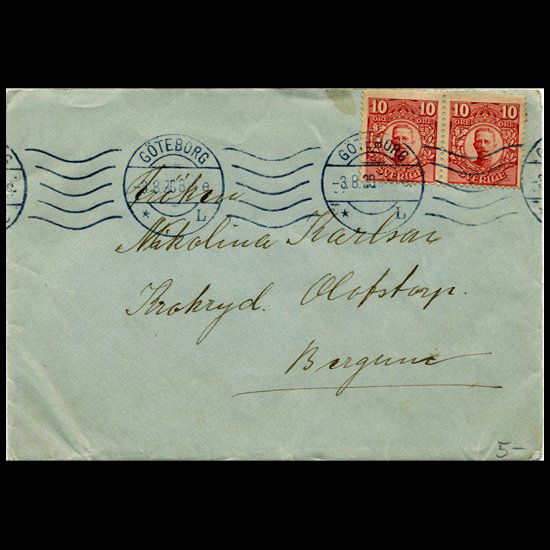 10 10 10 10
ÖRE ÖRE ÖRE ÖRE
SVERIGE SVERIGE
GÖTEBORG GÖTEBORG
-3.8.20 -3.8.20
* L * L
Fröken
Mikolina Karlsar
Krokryd. Olofstorp.
Bergum
5-